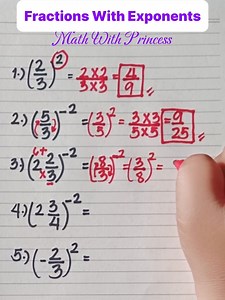 Fractions With Exponents
Math With Princess
1.) (2/3)² = 2 x 2 / 3 x 3 = 4/9
2.) (5/3)⁻² = (3/5)² = 3 x 3 / 5 x 5 = 9/25
3.) (2 2/3)⁻² = (8/3)⁻² = (3/8)² =
4.) (2 3/4)⁻² =
5.) (-2/3)² =